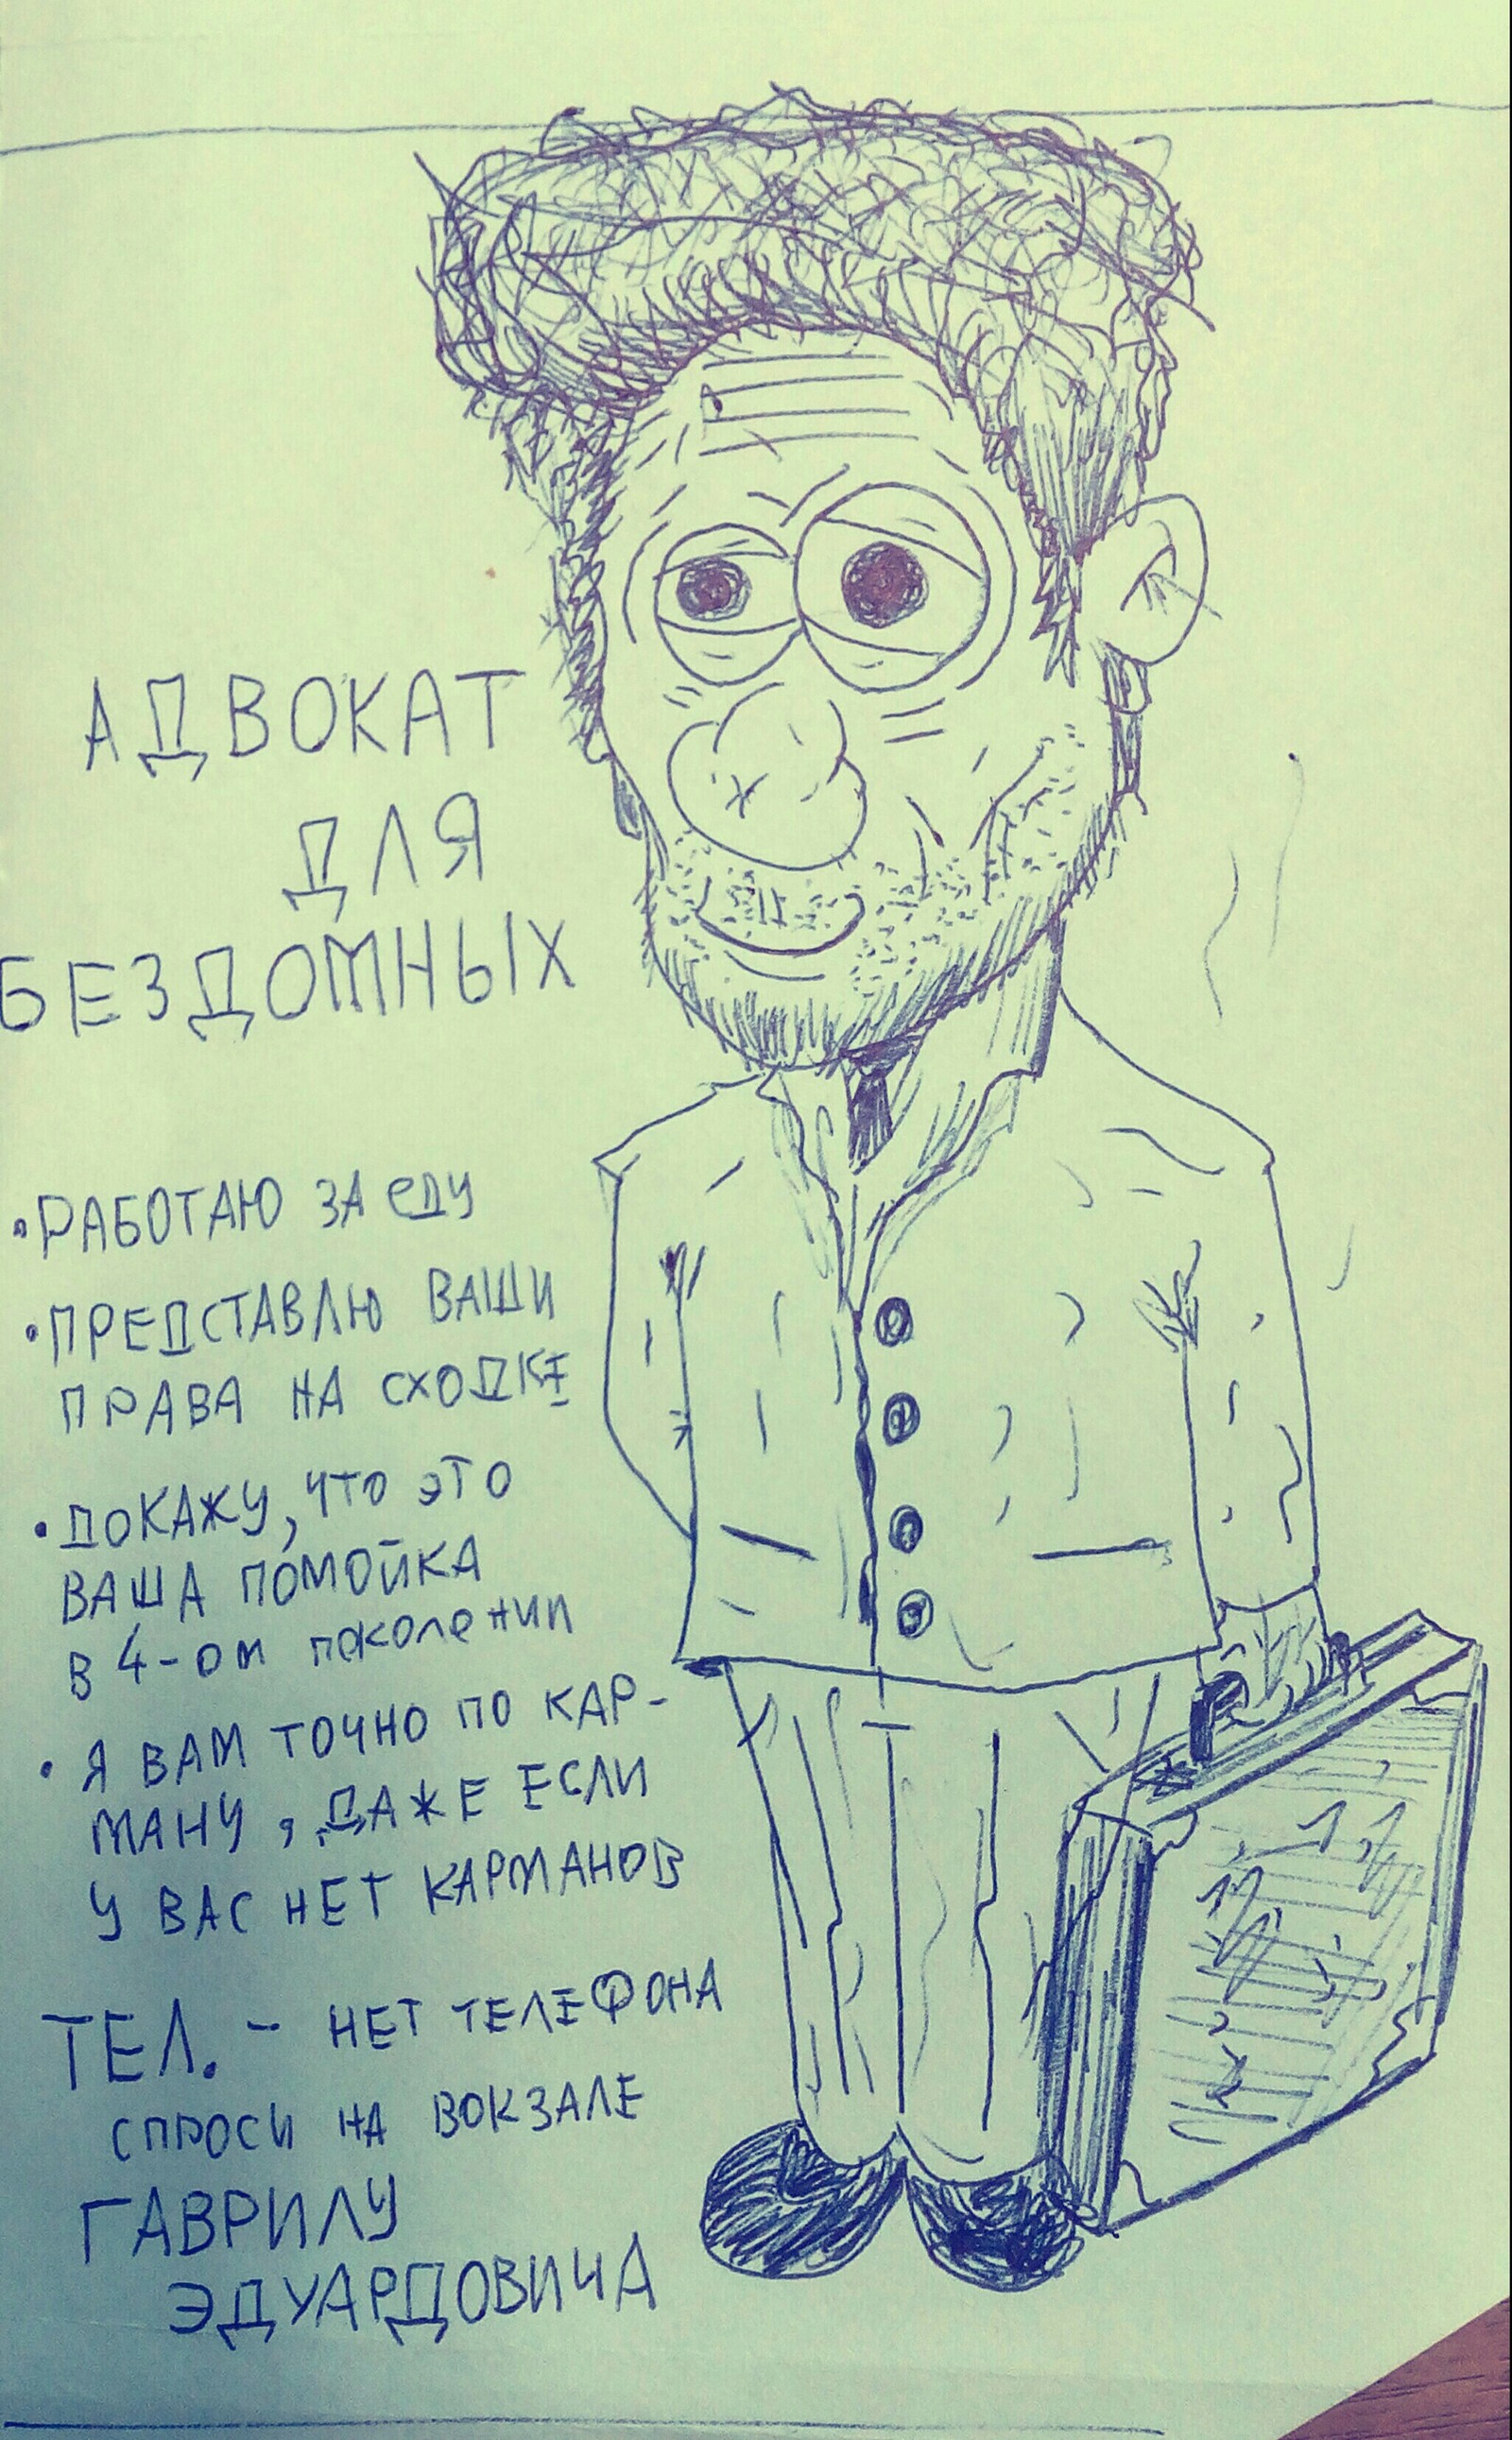 АДВОКАТ
ДЛЯ
БЕЗДОМНЫХ
•РАБОТАЮ ЗА ЕДУ
•ПРЕДСТАВЛЮ ВАШИ
ПРАВА НА СХОДКЕ
•ДОКАЖУ, ЧТО ЭТО
ВАША ПОМОЙКА
В 4-ОМ ПОКОЛЕНИИ
• Я ВАМ ТОЧНО ПО КАР-
МАНУ, ДАЖЕ ЕСЛИ
У ВАС НЕТ КАРМАНОВ
ТЕЛ. - НЕТ ТЕЛЕФОНА
СПРОСИ НА ВОКЗАЛЕ
ГАВРИЛУ
ЭДУАРДОВИЧА